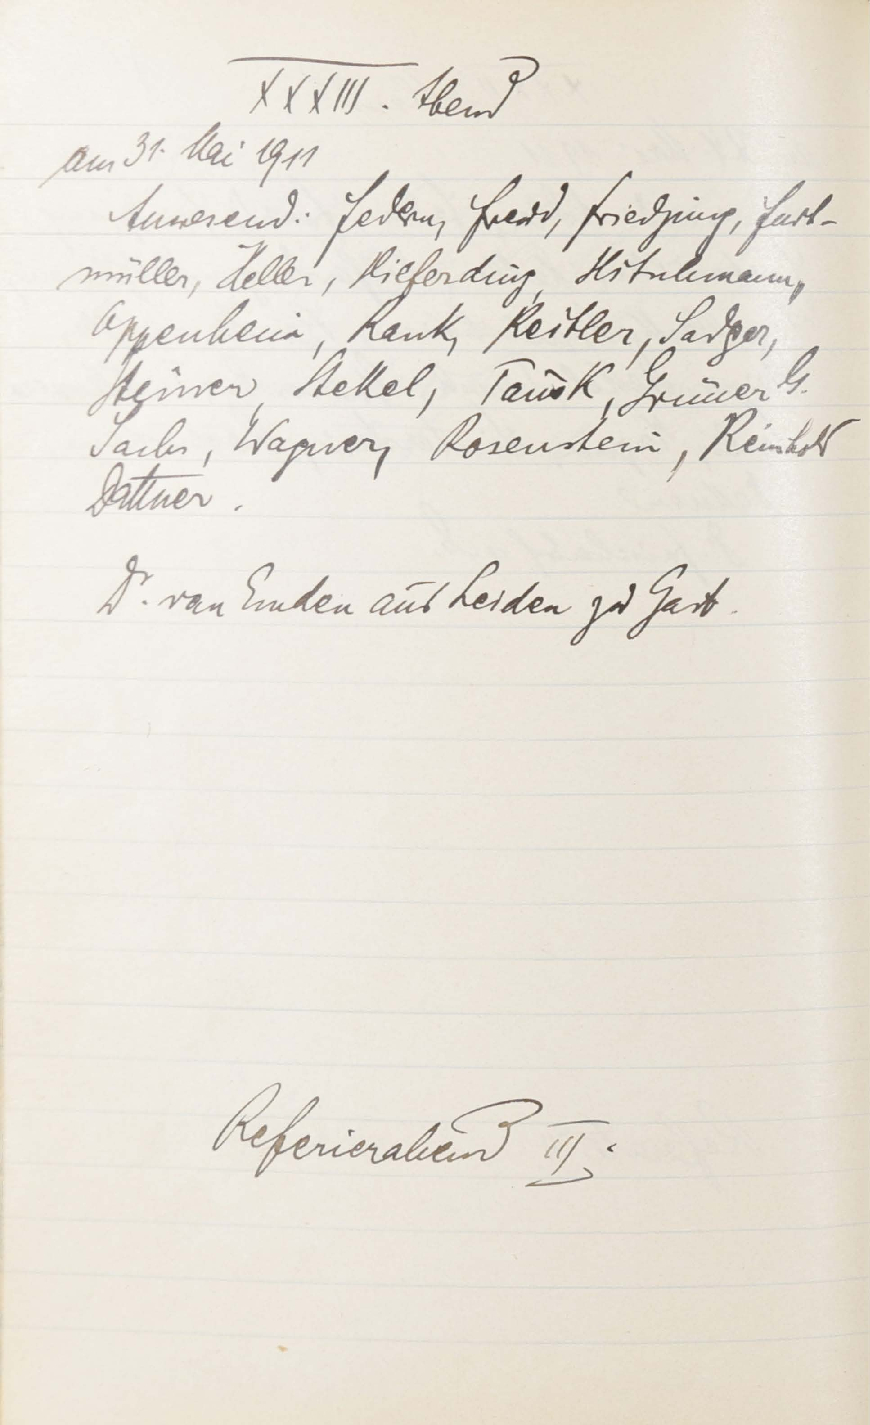 XXXIII. Abend
am 31. Mai 1911
Anwesend: Federn, Freud, Friedjung, Furt-
müller, Heller, Hilferding, Hitschmann,
Oppenheim, Rank, Reitler, Sadger,
Steiner, Stekel, Tausk, Grüner G.
Sachs, Wagner, Rosenstein, Reinhold
Dattner.
Dr. van Emden aus Leiden zu Gast.
Referierabend III.